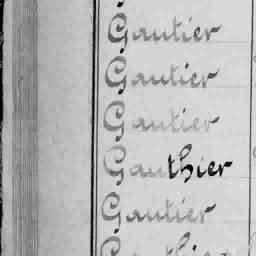 Gautier
Gautier
Gautier
Gauthier
Gautier